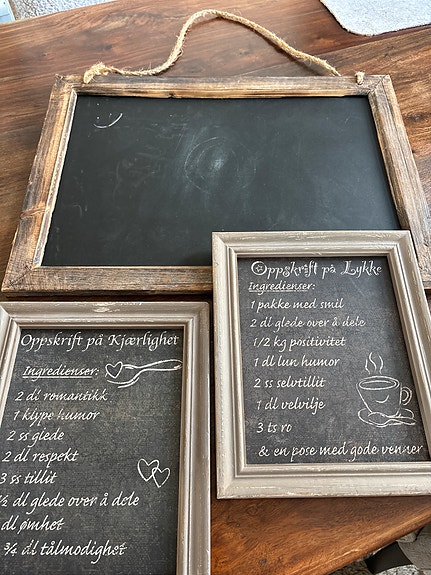 Oppskrift på Lykke
Ingredienser:
1 pakke med smil
2 dl glede over å dele
1/2 kg positivitet
1 dl lun humor
2 ss selvtillit
1 dl velvilje
3 ts ro
& en pose med gode venner
Oppskrift på Kjærlighet
Ingredienser:
2 dl romantikk
1 klype humor
2 ss glede
2 dl respekt
3 ss tillit
½ dl glede over å dele
dl ømhet
¾ dl tålmodighet